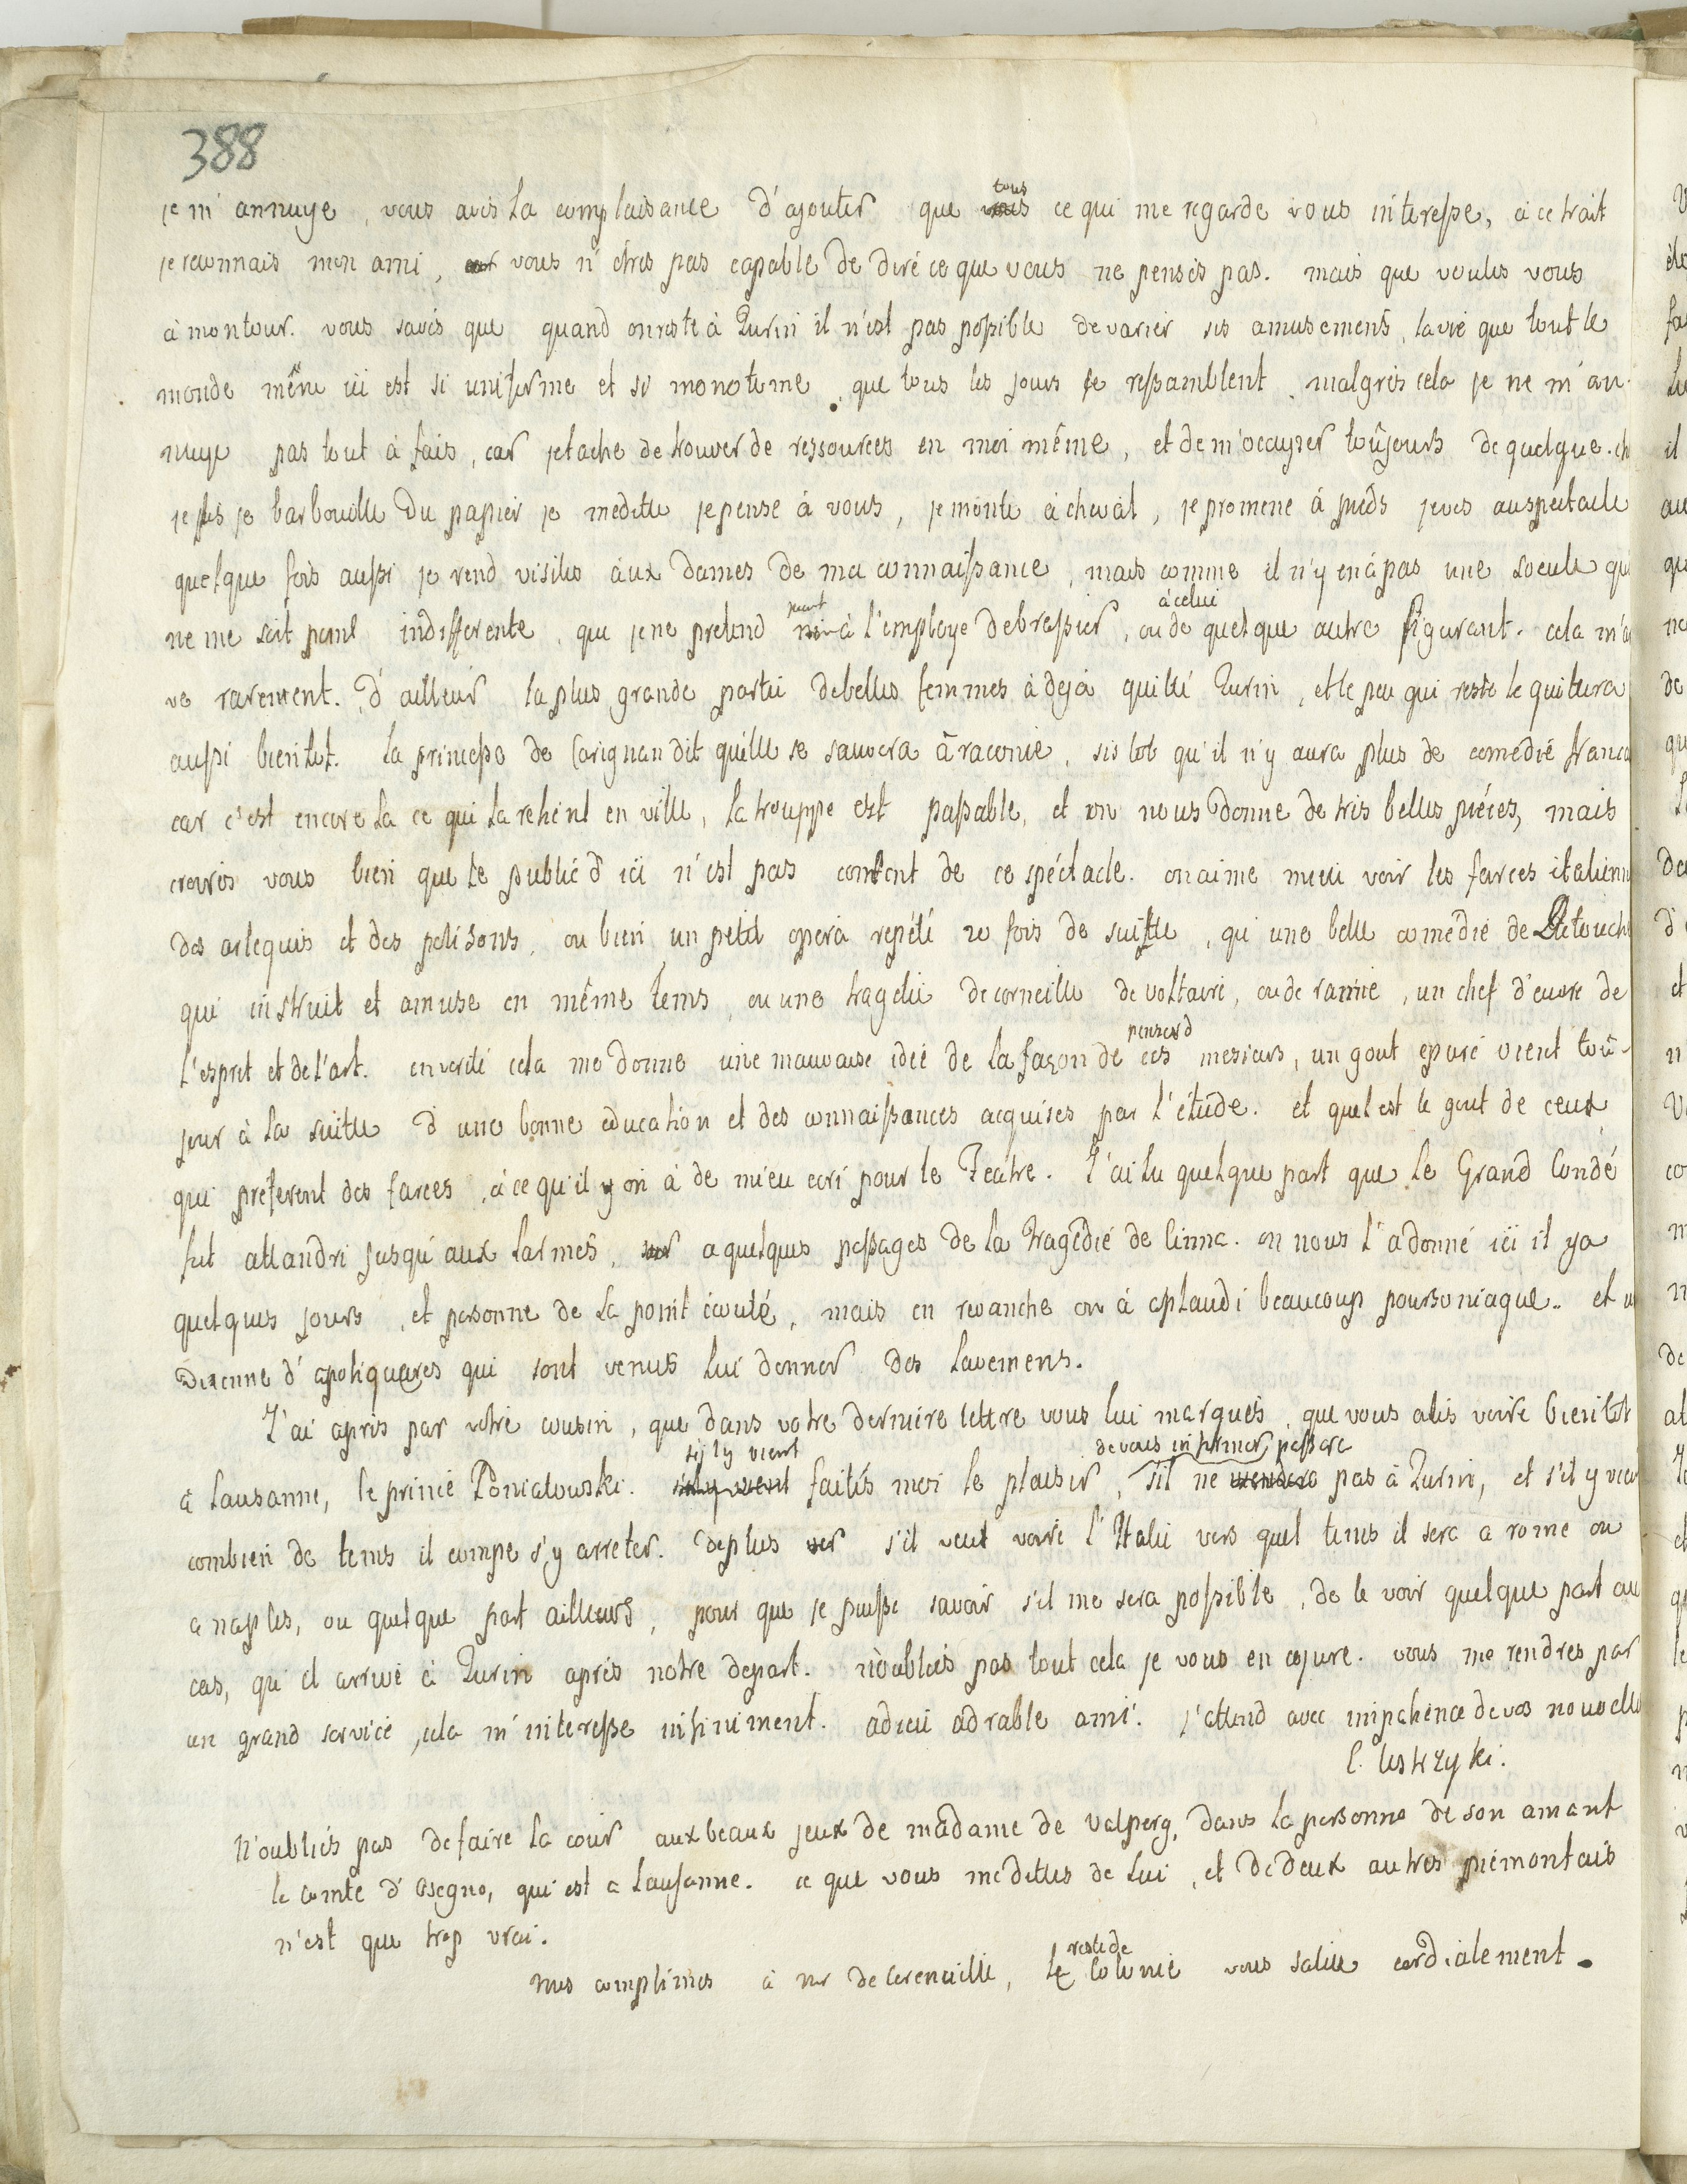 388
je m'annuye, vous avés la complaisance d'ajouter que tous ce qui me regarde vous interesse, à ce trait
je reconnais mon ami, vous n'etres pas capable de diré ce que vous ne pensés pas. mais que voulés vous
à mon tour. vous savés que quand on reste à Turin il n'est pas possible de varier ses amusemens, la vie que tout le
monde méne ici est si uniforme et si monotome, que tous les jours se ressamblent. malgrés cela je ne m'an-
nuye pas tout à fais, car je tache de trouver de ressources en moi même, et de m'occuper toûjours de quelque ch
je lis je barbouille du papier je meditte je pense à vous, je monte à cheval, je promene à pieds je ves au spectacle
quelque fois aussi je rend visites àux dames de ma connaissance, mais comme il n'y en à pas une soeule qui
ne me soit point indifferente, que je ne pretend point à l'employe de brassier, ou à celui de quelque autre figurant. cela m'a
ve rarement. d'ailleur la plus grande partie de belles femmes à deja quitté Turin, et le peu qui reste le quittera
aussi bientot. la princesse de Carignan dit quelle se sauvera à raconie, sis tot qu'il n'y aura plus de comedié franca
car c'est encore la ce qui la retient en ville, la trouppe est passable, et on nous donne de tris belles piéces, mais
croirés vous bien que le public d'ici n'est pas content de ce spéctacle. on aime mieu voir les farces italienn
des arlequis et des polisons, ou bien un petit opera repété 20 fois de suitte, qu une belle comedié de Detouche
qui instruit et amuse en même tems, ou une tragedie de corneille de voltaire, ou de racine, un chef d'euvre de
l'esprit et de l'art. en verité cela me donne une mauvaise idée de la façon de penser d ces mesieurs, un gout epuré vient toû-
jour à la suitte d'une bonne education et des connaissances acquises par l'étude. et quel est le gout de ceux
qui preferent des farces, à ce qu'il y en à de mieu ecri pour le Teatre. J'ai lu quelque part que le Grand Condé
fut attandri jusqu'aux larmes, a quelques passages de la tragédié de Cinna. on nous l'a donné ici il ya
quelques jours, et personne de la point écouté, mais en revanche on à aplaudi beaucoup poursoniaque.. et u
dixenne d'apotiquaires qui sont venus lui donner des lavemens.
J'ai apris par votre cousin, que dans votre derniere lettre vous lui marqués, que vous alés voire bientot
à Lausanne, le prince Poniatouski. s'il y vient faités moi le plaisir, de vous informer, s'il ne passera pas à Turin, et s'il y vien
combien de tems il compe s'y arreter. de plus s'il veut voire l'Italie vers quel tems il sera a rome ou
a naples, ou quelque part ailleurs, pour que je puisse savoir s'il me sera possible, de le voir quelque part au
cas, qu'il arrive à Turin aprés notre depart. n'oubliés pas tout cela je vous en cojure. vous me rendres par
un grand service, cela m'interesse infiniment. adieu adrable ami. j'attend avec impatience de vos nouvelle
C. Ustrzyki.
N'oubliés pas de faire la cour aux beaux jeux de madame de Valperg, dans la personne de son amant
le comte d'Osegno, qui est a Lausanne. ce que vous me dittes de lui, et de deux autres piemontais
n'est que trop vrai.
mes complimes à mr de Cerenville, le reste de Colonie vous salue cordialement.